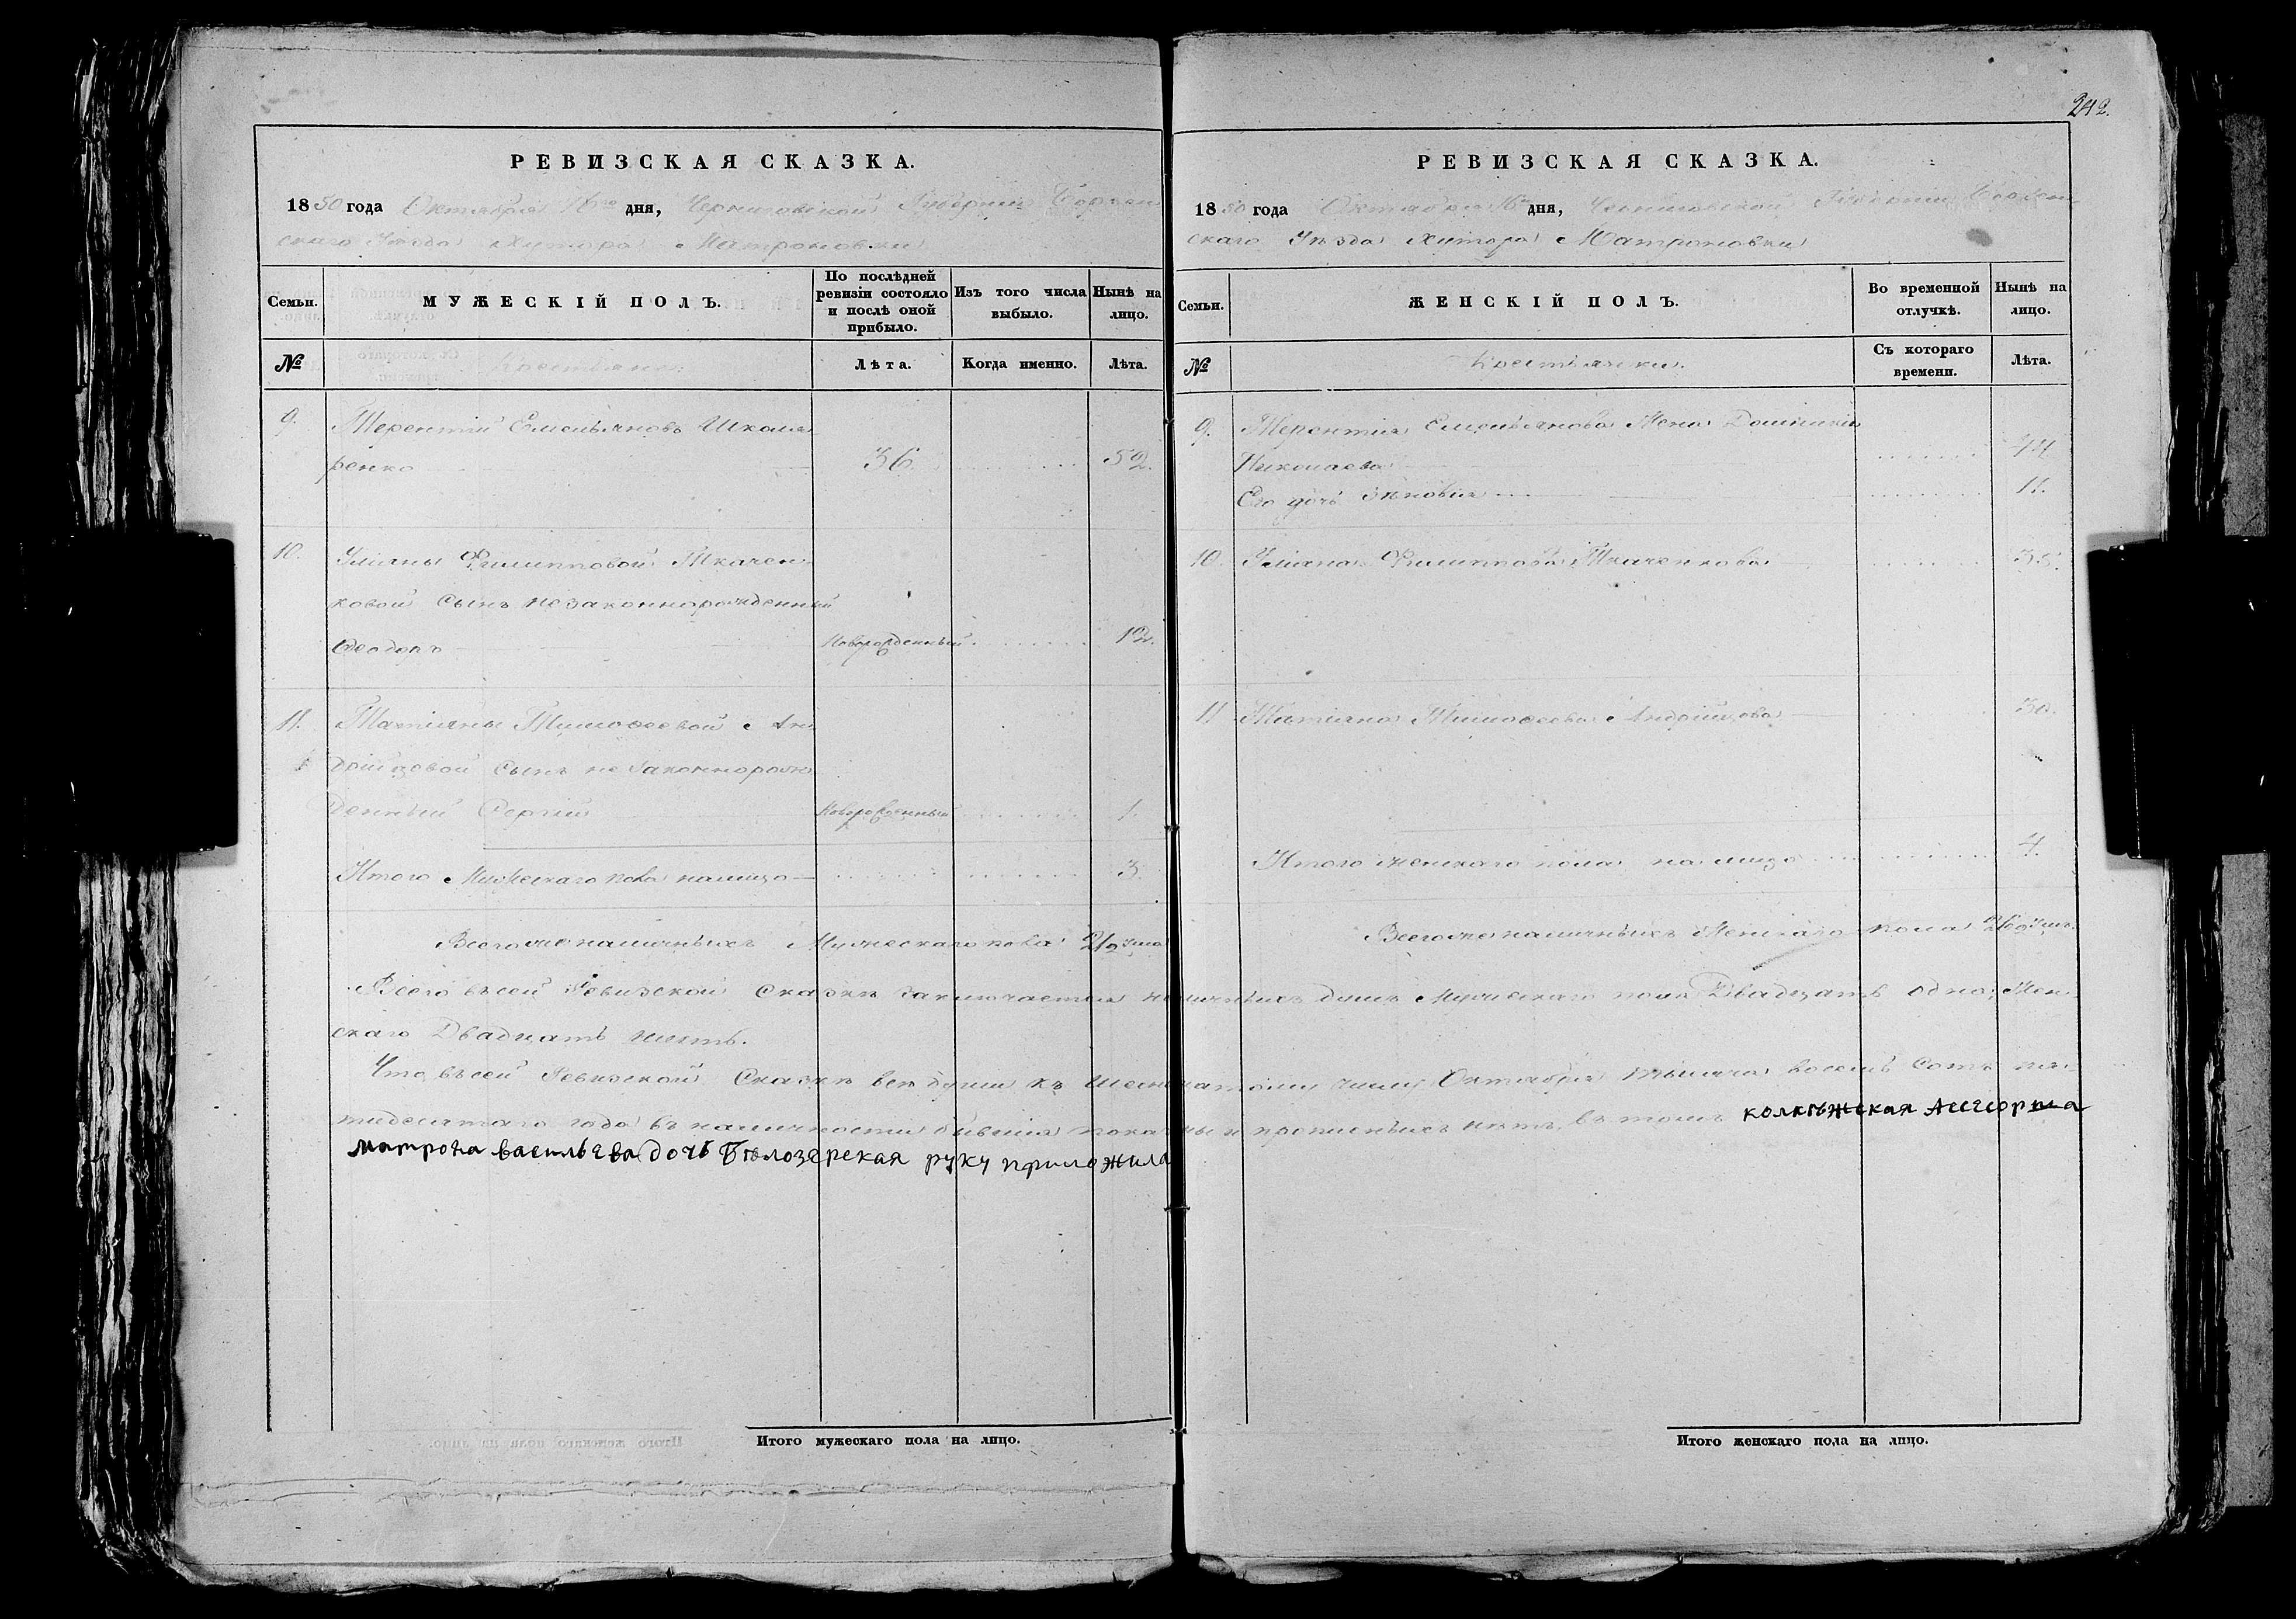 242.
РЕВИЗСКАЯ СКАЗКА.
1850 года Октября 16го дня, Черниговской Губернии Борзен
скаго Уѣзда Хутора Матроновки
Семьи.
МУЖЕСКІЙ ПОЛЪ.
По послѣдней ревизіи состояло и послѣ оной прибыло.
Изъ того числа выбыло.
Нынѣ на лицо.
№
Крестьяне.
Лѣта.
Когда именно.
Лѣта.
9. Терентій Емельяновъ Шкляр
ренко 36. 52.
10. Уліяны Филипповой Ткачен-
ковой сынъ незаконнорожденный
Ѳеодоръ Новорожденный 12.
11. Татіяны Тимоѳеевой Ан
дрійцовой сынъ незаконнорож
денный Сергій Новорожденный 1.
Итого Мужескаго пола налицо 3.
Всего же наличныхъ Мужескаго пола 21
РЕВИЗСКАЯ СКАЗКА.
1850 года Октября 16го дня, Черниговской Губерніи Борзен
скаго Уѣзда Хутора Матроновки
Семьи.
ЖЕНСКІЙ ПОЛЪ.
Во временной отлучкѣ.
Нынѣ на лицо.
№
Крестьянки.
Съ котораго времени.
Лѣта.
9. Терентія Емельянова Жена Домникія
Николаева 44
Его дочь Зѣновія 11.
10. Уліяна Филиппова Ткаченкова 35.
11 Татіяна Тимоѳеева Андрійцова 30.
Итого женскаго пола на лицо 4.
Всего же наличныхъ Женскаго пола 26
Всего въ сей Ревизской Сказкѣ заключается наличныхъ душъ Мужескаго пола Двадцать одна, Жен-
скаго Двадцать шесть.
Что въ сей Ревизской Сказкѣ всѣ души къ шеснадцатому числу Октября тысяча восемь сотъ пя-
тидесятаго года въ наличности бывшія показаны и прописныхъ нѣтъ, въ томъ колѣжская Асесорша
матрона васильева дочь Бѣлозерская руку приложила
Итого мужескаго пола на лицо.
Итого женскаго пола на лицо.